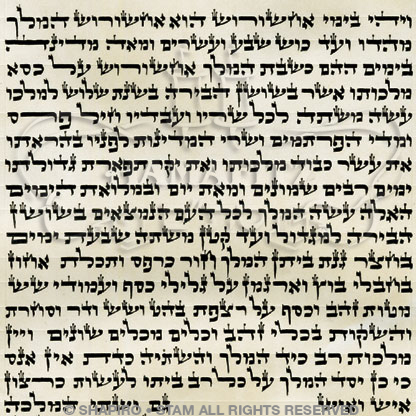 ויהי בימי אחשורוש הוא אחשורוש המלך
מהדו ועד כוש שבע ועשרים ומאה מדינה
בימים ההם כשבת המלך אחשורוש על כסא
מלכותו אשר בשושן הבירה בשנת שלוש למלכו
עשה משתה לכל שריו ועבדיו חיל פרס
ומדי הפרתמים ושרי המדינות לפניו בהראתו
את עשר כבוד מלכותו ואת יקר תפארת גדולתו
ימים רבים שמונים ומאת יום ובמלואת הימים
האלה עשה המלך לכל העם הנמצאים בשושן
הבירה למגדול ועד קטן משתה שבעת ימים
בחצר גנת ביתן המלך חור כרפס ותכלת אחוז
בחבלי בוץ וארגמן על גלילי כסף ועמודי שש
מטות זהב וכסף על רצפת בהט ושש ודר וסחרת
והשקות בכלי זהב וכלים מכלים שונים ויין
מלכות רב כיד המלך והשתיה כדת אין אנס
כי כן יסד המלך על כל רב ביתו לעשות כרצון
איש ואיש גם ושתי המלכה
© SHAPIRO • STAM ALL RIGHTS RESERVED